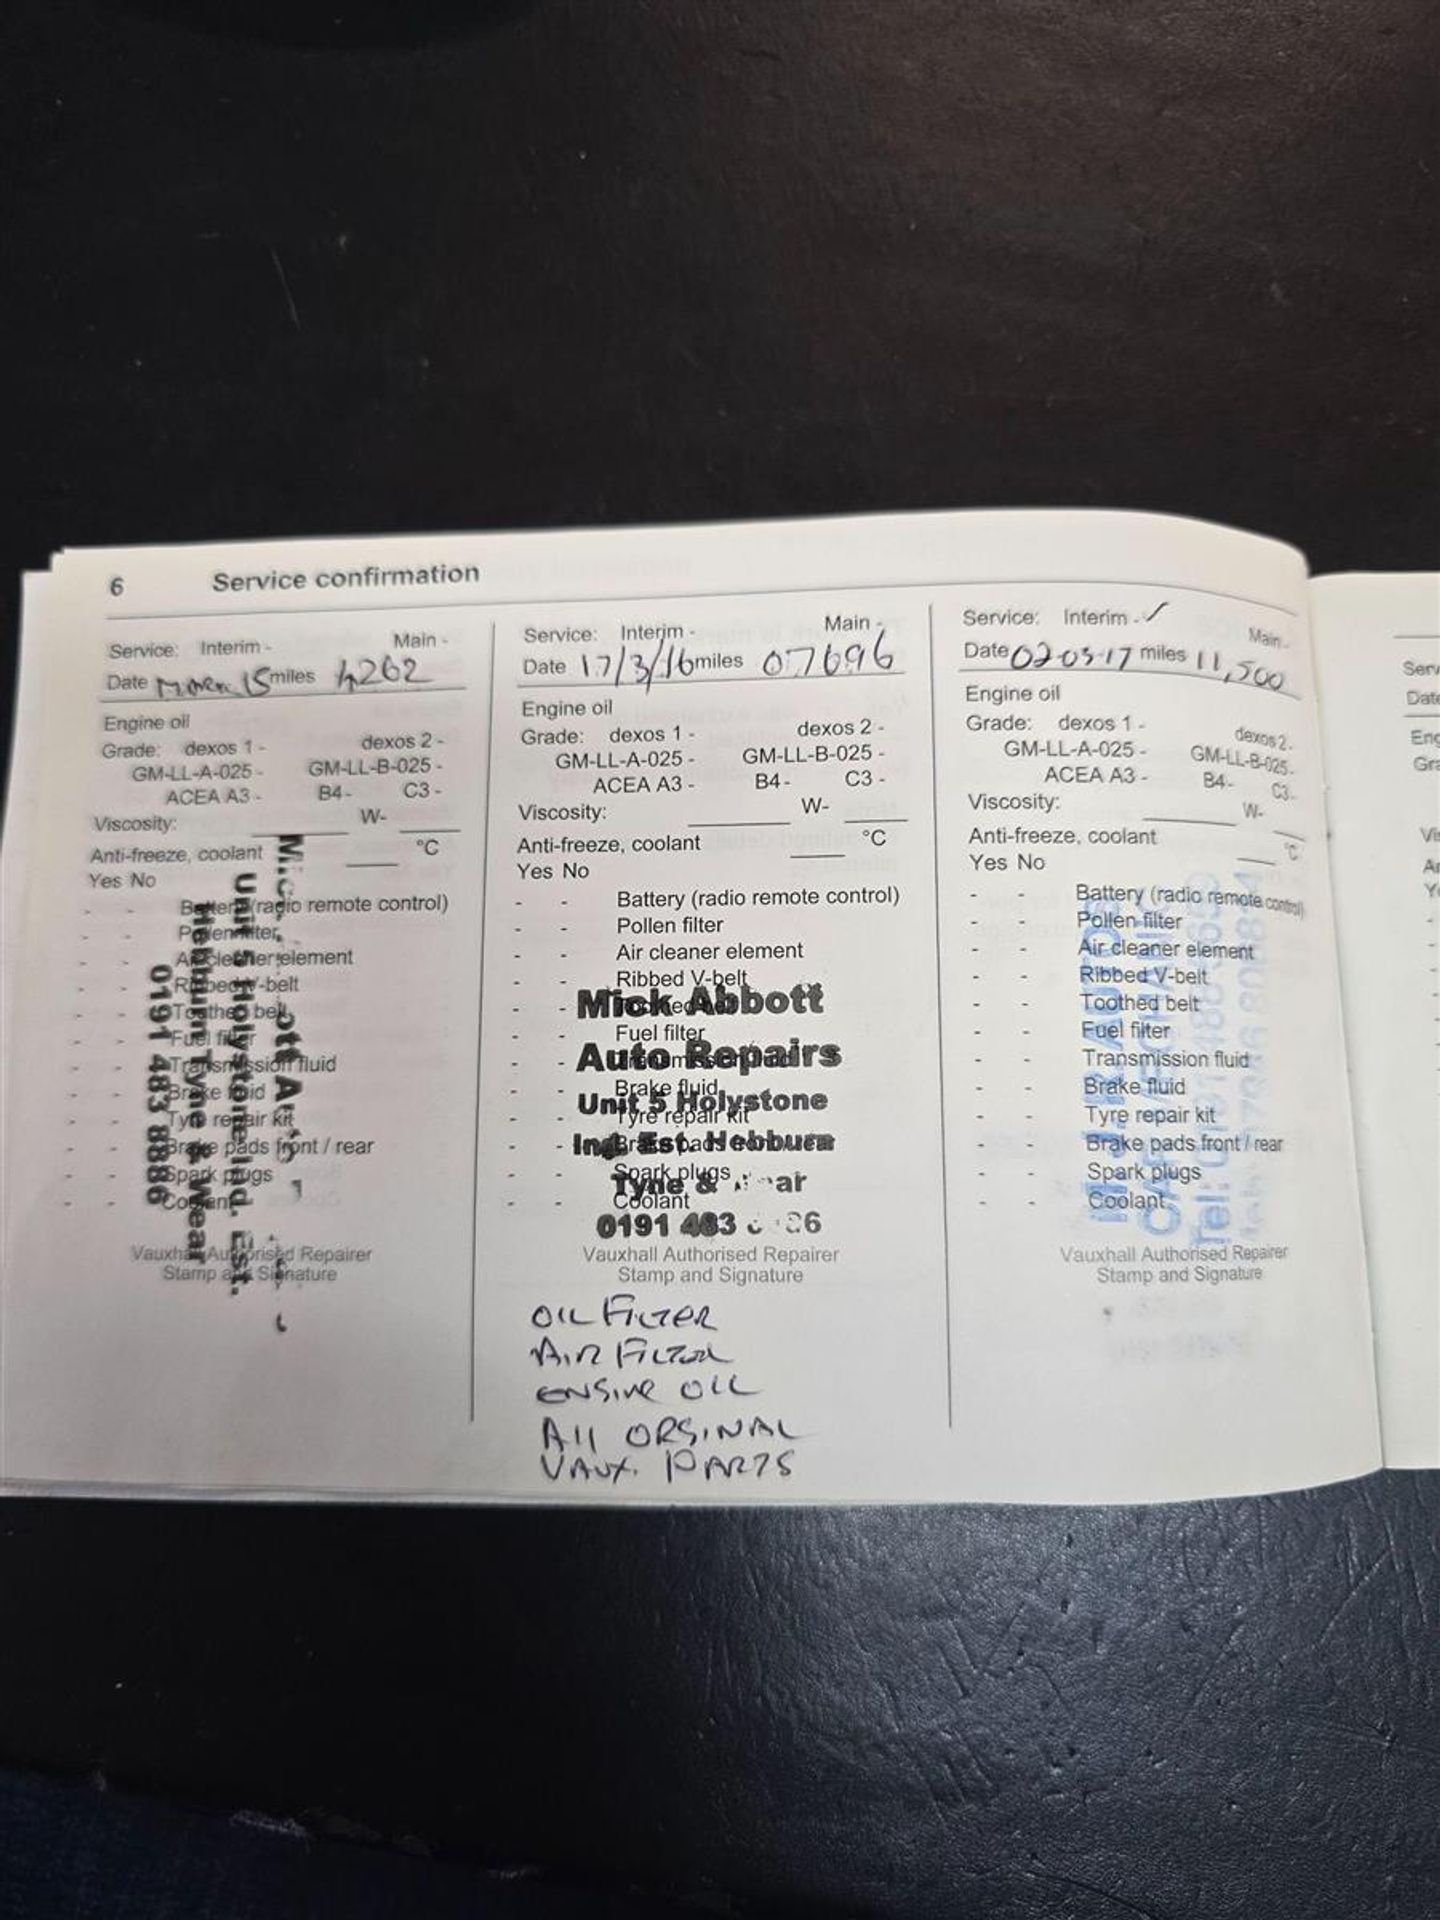 6 Service confirmation
Service: Interim - Main -
Date March 15 miles 4262
Engine oil
Grade: dexos 1 - dexos 2 -
GM-LL-A-025 - GM-LL-B-025 -
ACEA A3 - B4 - C3 -
Viscosity: W-
Anti-freeze, coolant °C
Yes No
- - Battery (radio remote control)
- - Pollen filter
- - Air cleaner element
- - Ribbed V-belt
- - Toothed belt
- - Fuel filter
- - Transmission fluid
- - Brake fluid
- - Tyre repair kit
- - Brake pads front / rear
- - Spark plugs
- - Coolant
Unit 5 Holystone Ind. Est.
Hebburn Tyne & Wear
0191 483 8886
Vauxhall Authorised Repairer
Stamp and Signature
Service: Interim - Main -
Date 17/3/16 miles 07696
Engine oil
Grade: dexos 1 - dexos 2 -
GM-LL-A-025 - GM-LL-B-025 -
ACEA A3 - B4 - C3 -
Viscosity: W-
Anti-freeze, coolant °C
Yes No
- - Battery (radio remote control)
- - Pollen filter
- - Air cleaner element
- - Ribbed V-belt
- - Toothed belt
- - Fuel filter
- - Transmission fluid
- - Brake fluid
- - Tyre repair kit
- - Brake pads front / rear
- - Spark plugs
- - Coolant
Mick Abbott
Auto Repairs
Unit 5 Holystone
Ind. Est. Hebburn
Tyne &
0191 483
Vauxhall Authorised Repairer
Stamp and Signature
OIL FILTER
AIR FILTER
ENGINE OIL
All ORGINAL
VAUX. PARTS
Service: Interim - ✓ Main -
Date 02-03-17 miles 11,500
Engine oil
Grade: dexos 1 - dexos 2 -
GM-LL-A-025 - GM-LL-B-025 -
ACEA A3 - B4 - C3 -
Viscosity: W-
Anti-freeze, coolant °C
Yes No
- - Battery (radio remote control)
- - Pollen filter
- - Air cleaner element
- - Ribbed V-belt
- - Toothed belt
- - Fuel filter
- - Transmission fluid
- - Brake fluid
- - Tyre repair kit
- - Brake pads front / rear
- - Spark plugs
- - Coolant
Vauxhall Authorised Repairer
Stamp and Signature